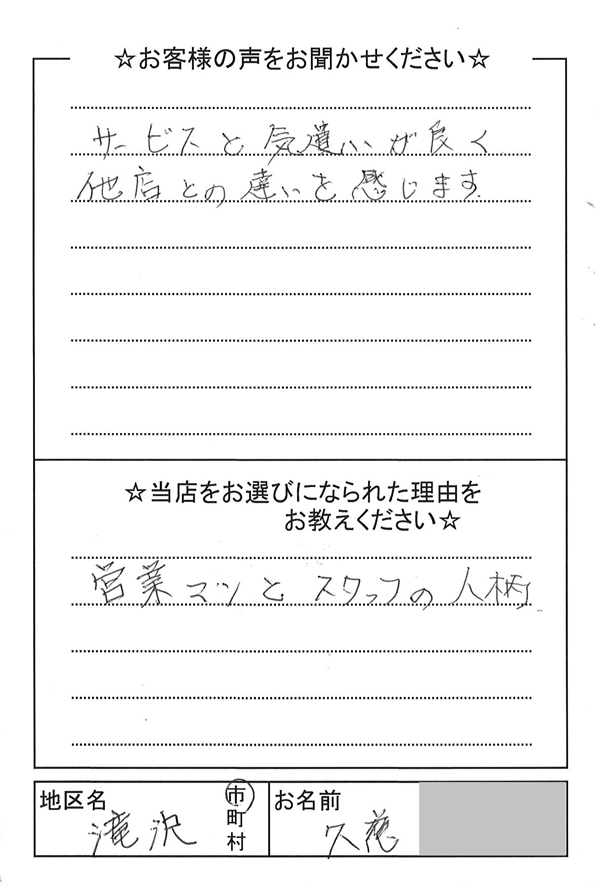 ☆お客様の声をお聞かせください☆
サービスと気遣いが良く
他店との違いを感じます
☆当店をお選びになられた理由を
お教えください☆
営業マンとスタッフの人柄
地区名
滝沢
市
町
村
お名前
久慈